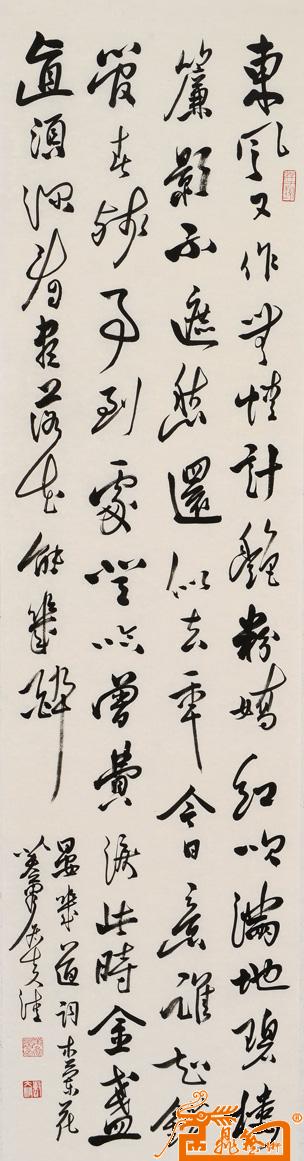 東風又作無情計艷粉嬌紅吹滿地碧樓
簾影不遮愁還似去年今日意誰知錯
管春殘事到處登臨曾費淚此時金盞
直須深看盡落花能幾醉
晏幾道詞木蘭花